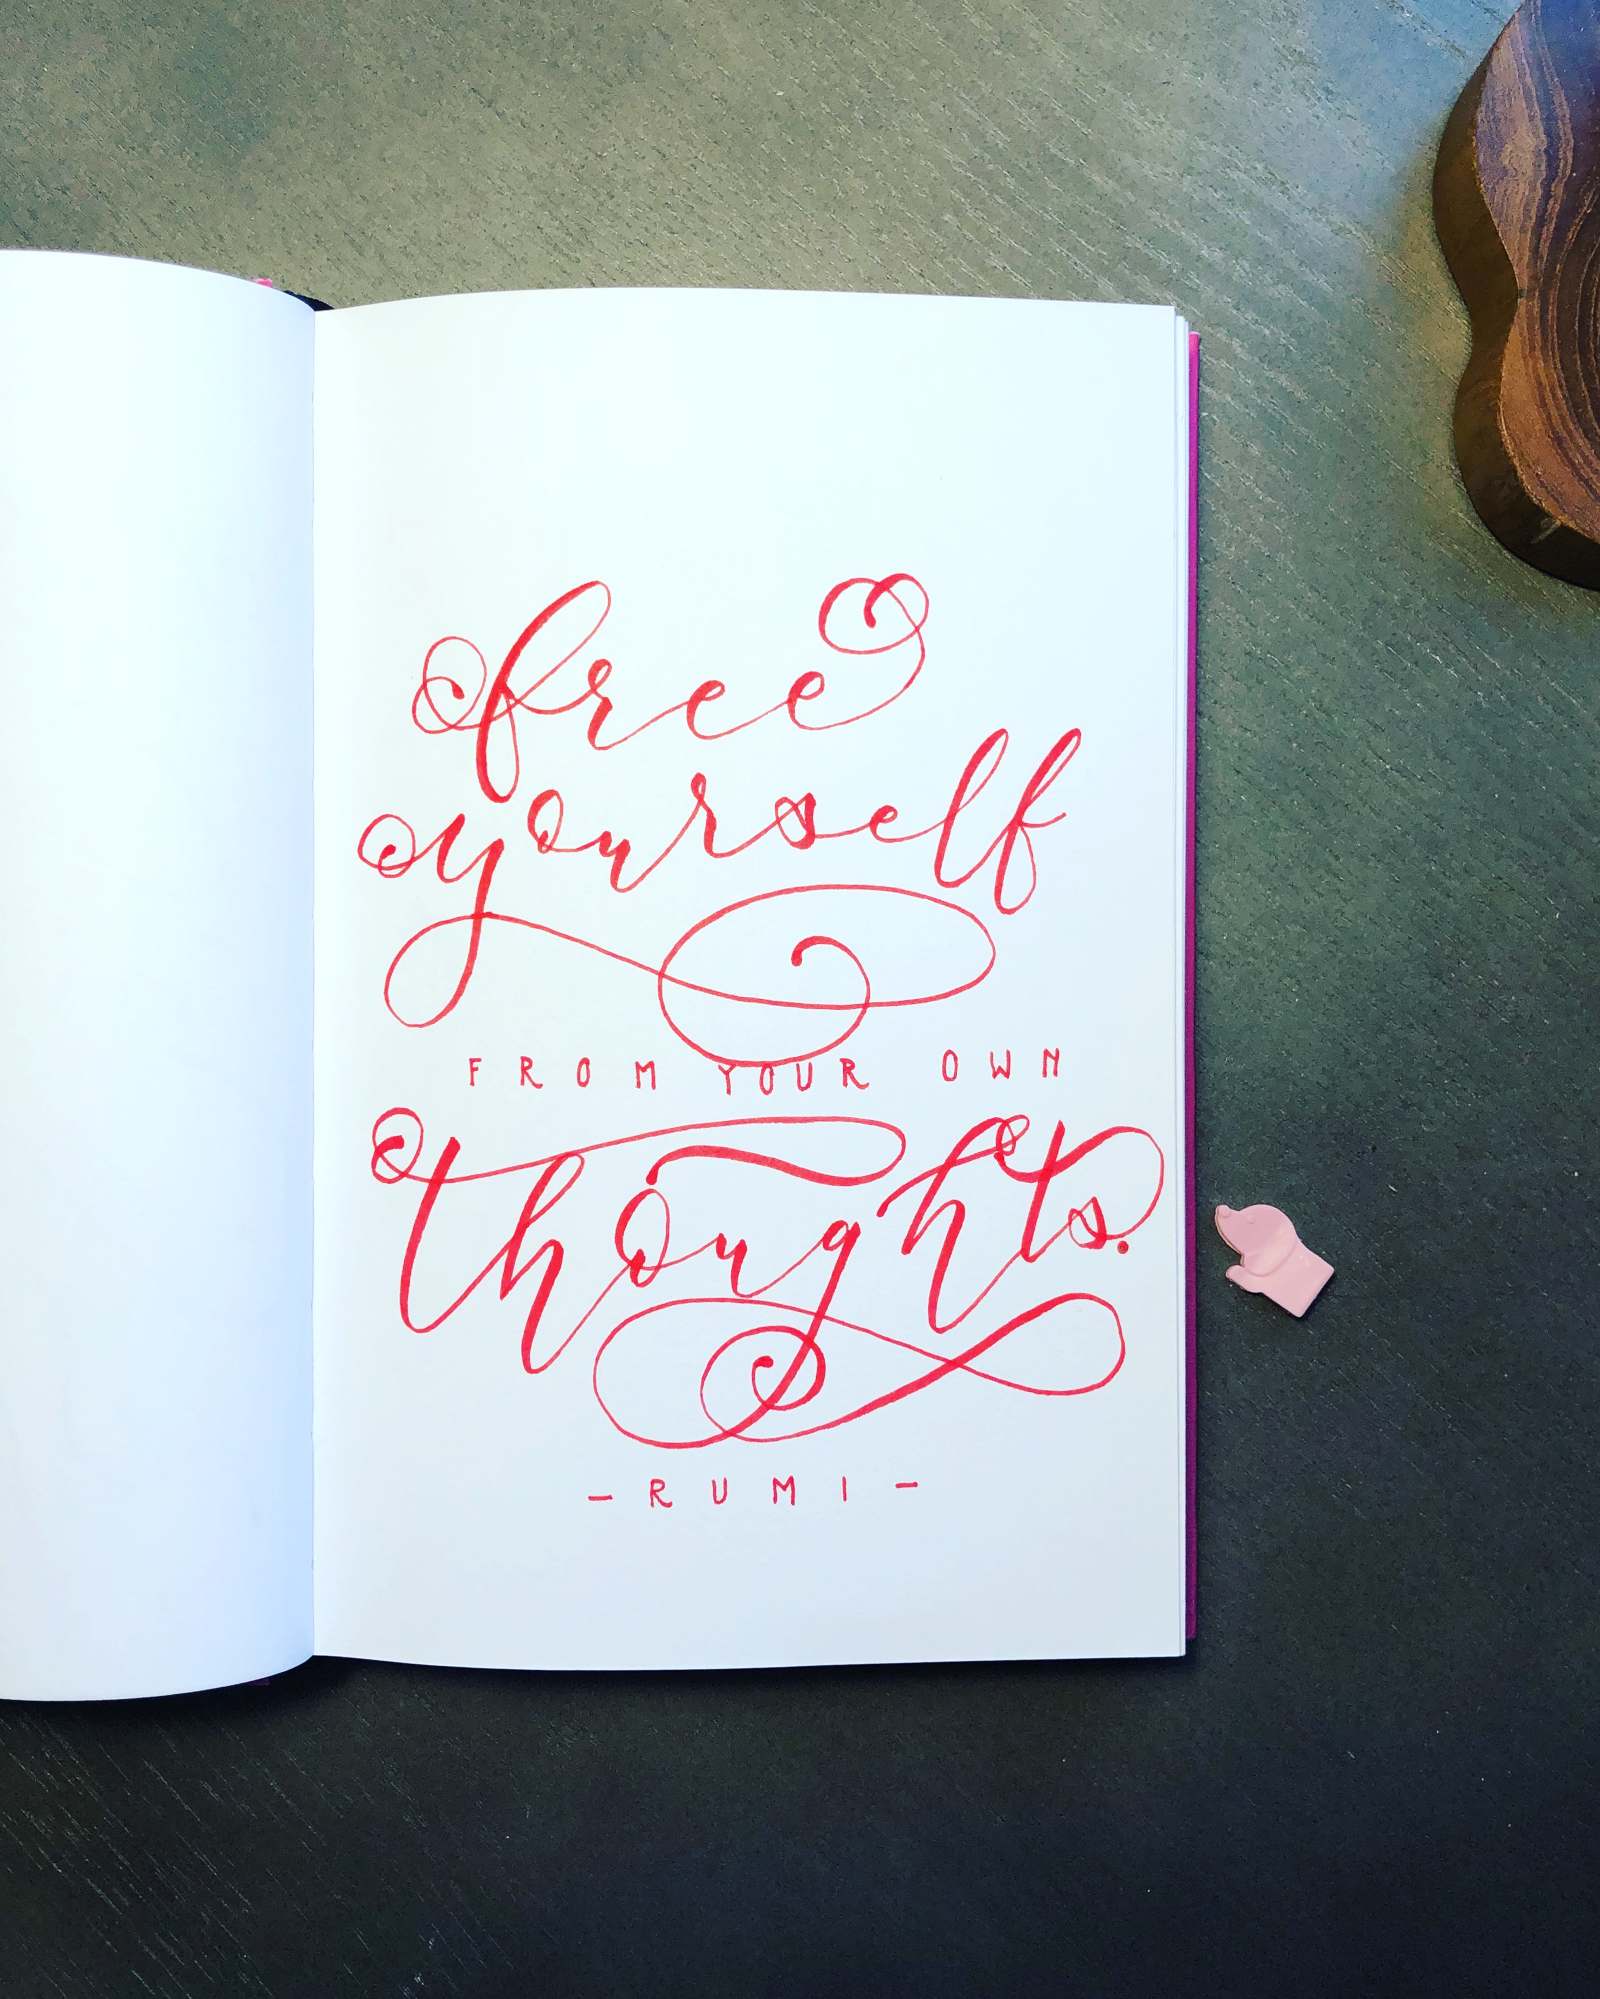 free
yourself
FROM YOUR OWN
thoughts.
- RUMI -